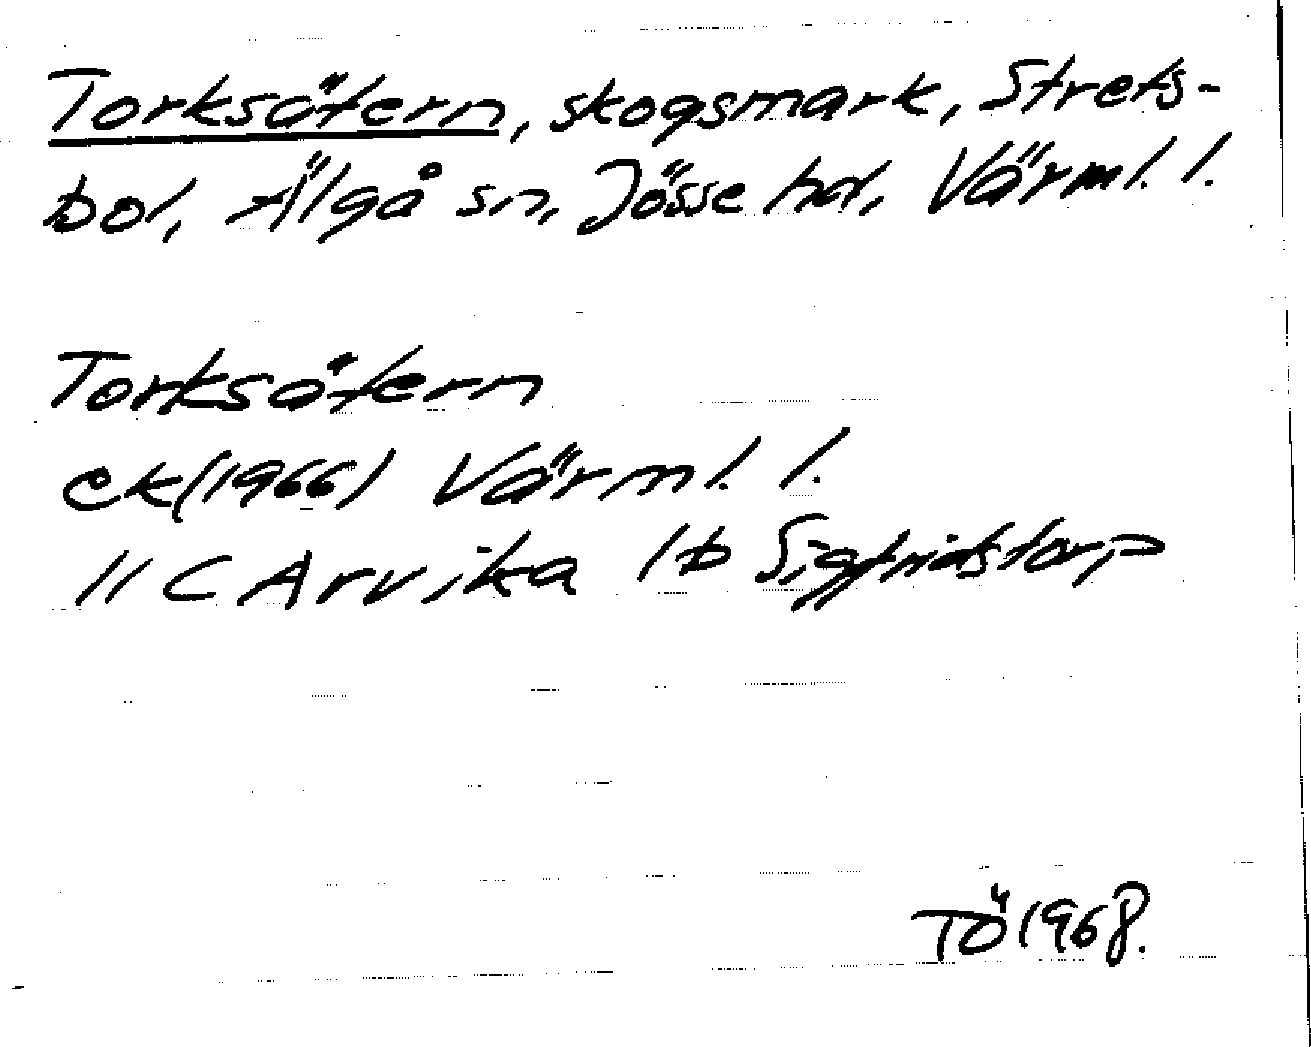 Torksätern, skogsmark, Strets-
bol, Älgå sn, Jösse hd, Värml. l.
Torksätern
ek(1966) Värml. l.
11 C Arvika 1 b Sigfridstorp
TÖ 1968.